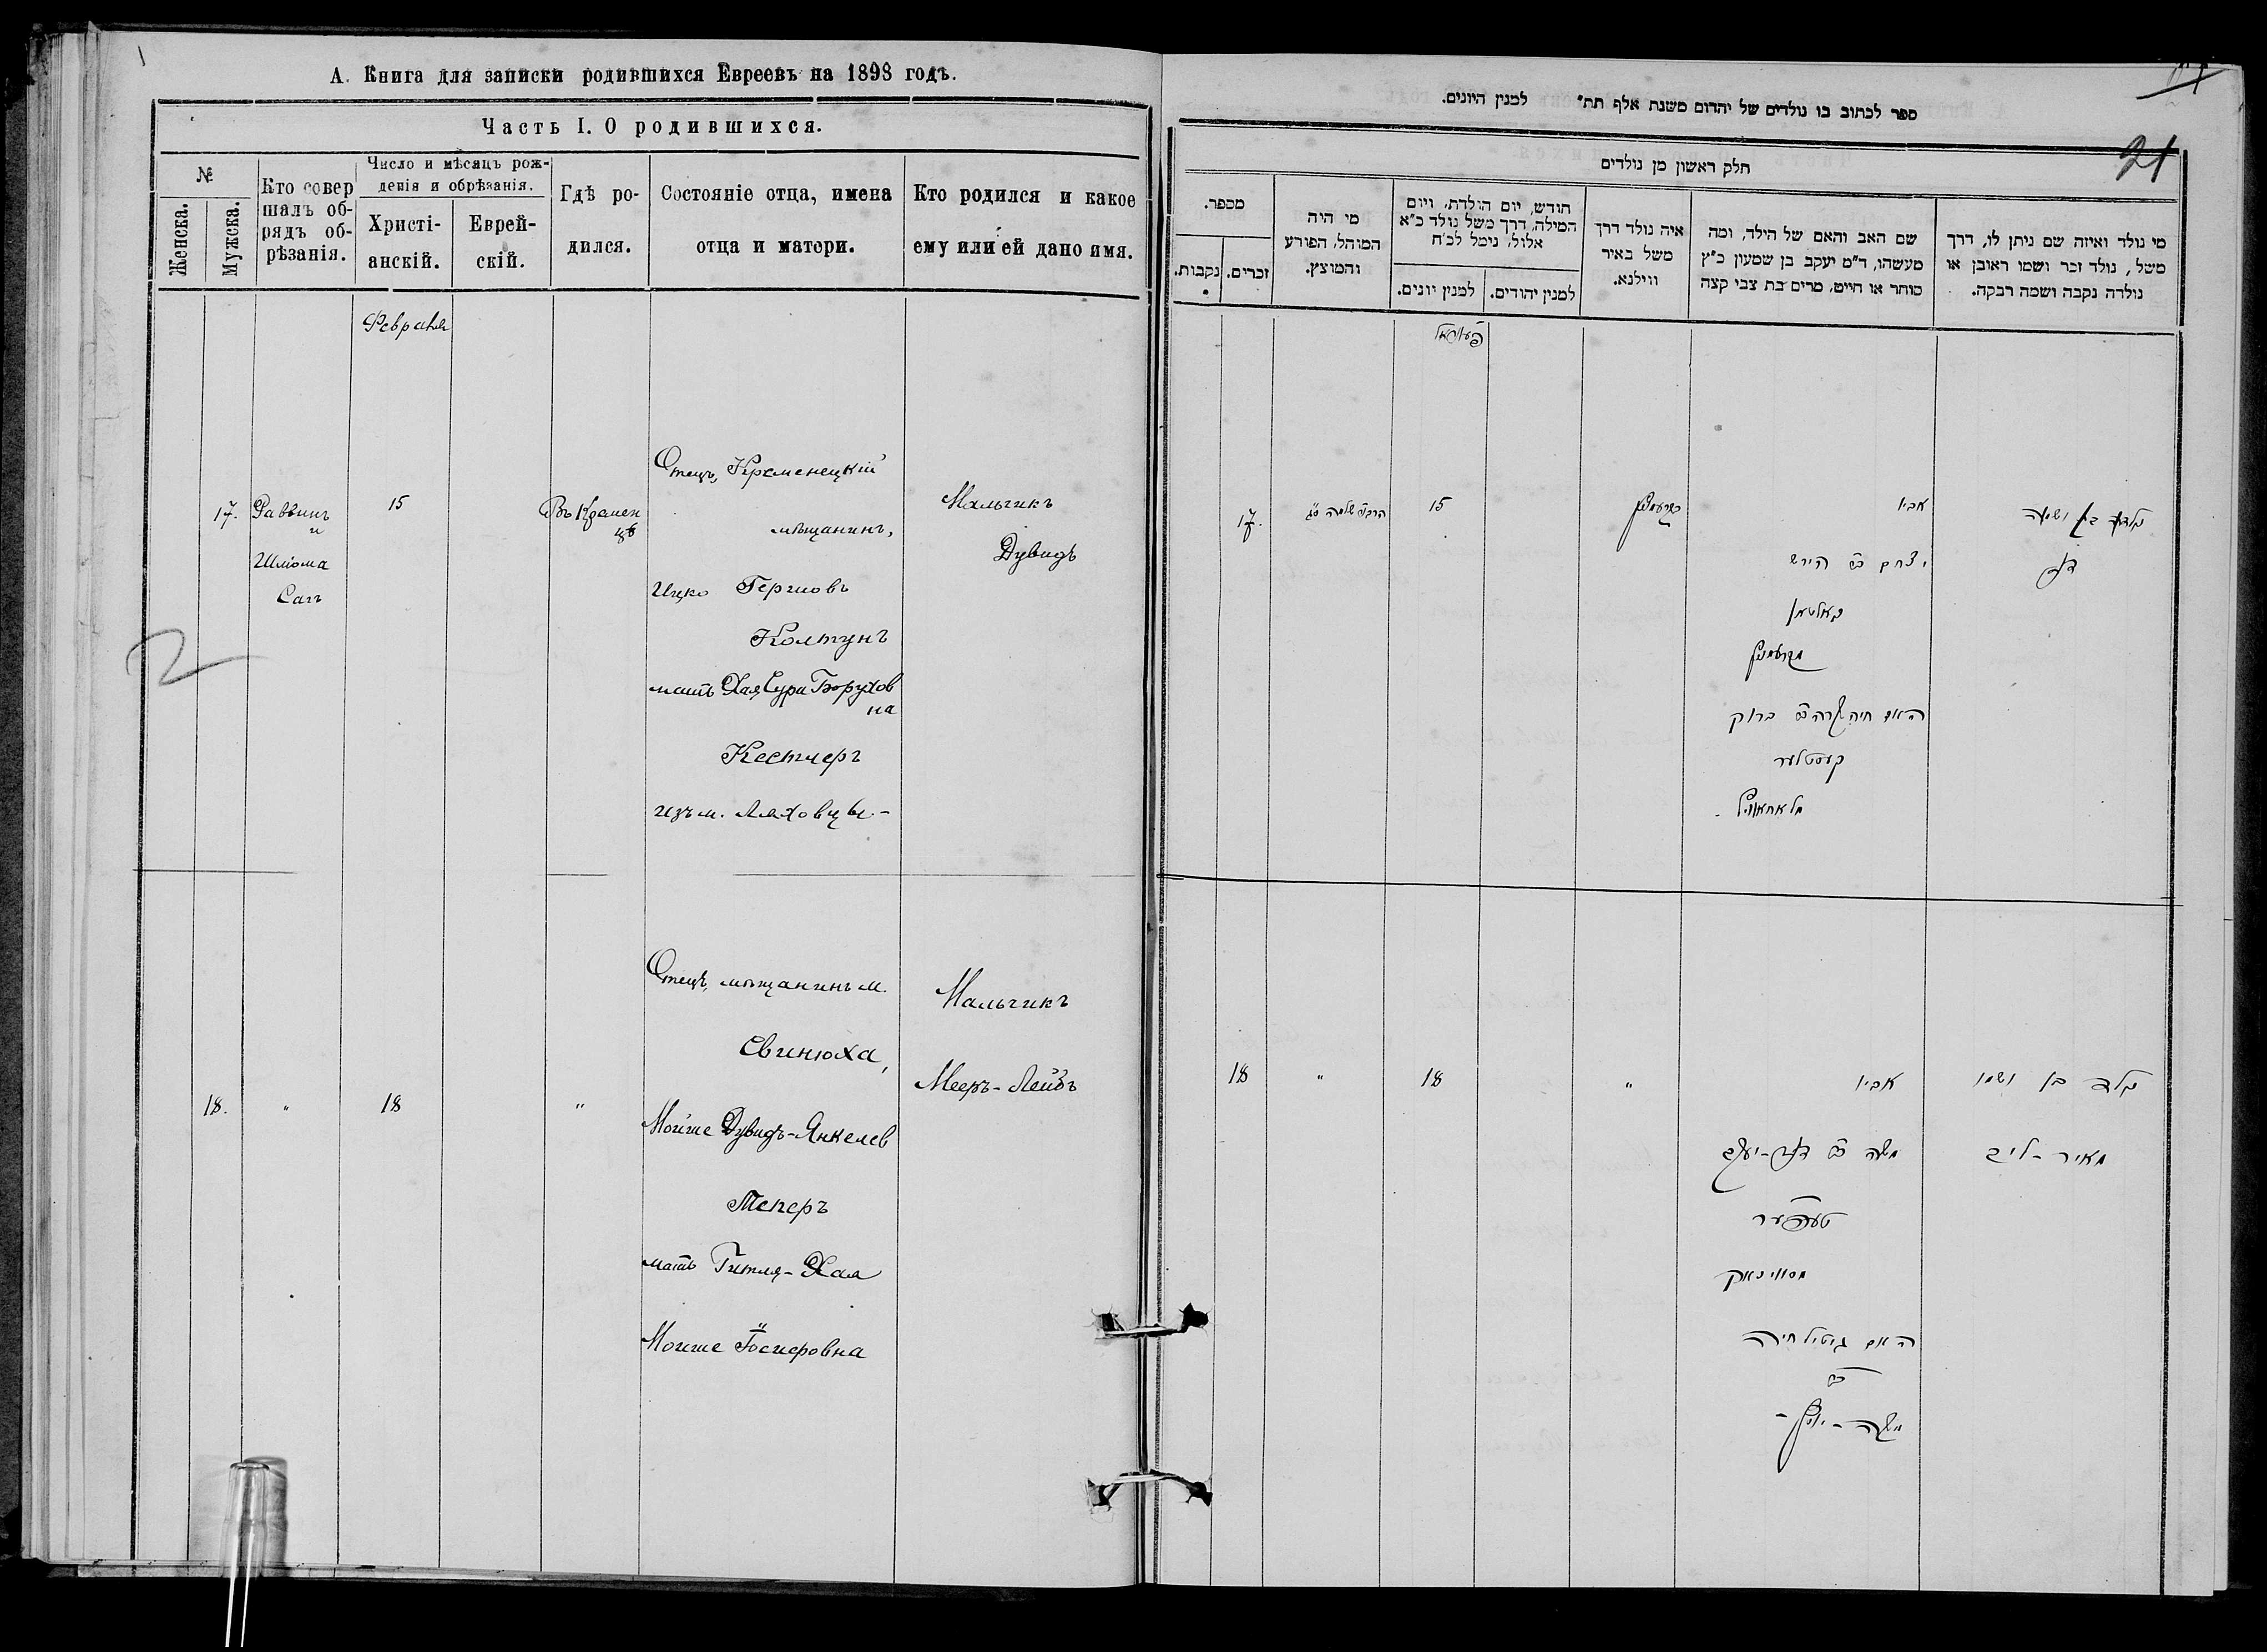 А. Книга для записки родившихся Евреевъ на 1898 годъ.
Часть I. О родившихся.
№
Женска.
Мужска.
Кто совер
шалъ об-
рядъ об-
рѣзанія.
Число и мѣсяцъ рож-
денія и обрѣзанія.
Христі-
анскій.
Еврей-
скій.
Гдѣ ро-
дился.
Состояніе отца, имена
отца и матери.
Кто родился и какое
ему или ей дано имя.
Февраля
17.
Раввинъ
и
Шлiома
Сагъ
15
Въ Кремен
цѣ
Отецъ, Кременецкій
мѣщанинъ,
Ицко Гершовъ
Колтунъ
мать Хая Сура Борухов
на
Кестлеръ
изъ м. Ляховцы -
Мальчикъ
Дувидъ
2
18.
"
18
"
Отецъ, мѣщанинъ м.
Свинюха,
Мойше Дувидъ-Янкелев
Теперъ
мать Гитля-Хая
Мойше Іосиеровна
Мальчикъ
Мееръ-Лейбъ
ספר לכתוב בו נולדים של יהדום משנת אלף תת" למנין היונים.
21
חלק ראשון מן נולדים
מספר.
נקבות.
זכרים.
מי היה
המוהל, הפורע
והמוצץ.
חודש, יום הולדת, ויום
המילה, דרך משל נולד כ"א
אלול, נימל לכ"ח
למנין יונים.
למנין יהודים.
איה נולד דרך
משל באיר
ווילנא.
שם האב והאם של הילד, ומה
מעשהו, ד"מ יעקב בן שמעון כ"ץ
סוחר או חייט, מרים בת צבי קצה
מי נולד ואיזה שם ניתן לו, דרך
משל, נולד זכר ושמו ראובן או
נולדה נקבה ושמה רבקה.
17.
15
אביו
יצחק ב"ר הירש
קאלטאן
מקרעמניץ
האם חיה שרה ב"ר ברוך
קעסטלער
נולד בן ושמו
דוד
18
"
18
"
אביו
משה ב"ר דוד-יעקב
טעפער
האם גיטיל חיה
ב"ר
משה-יוסף-
נולד בן ושמו
מאיר-ליב